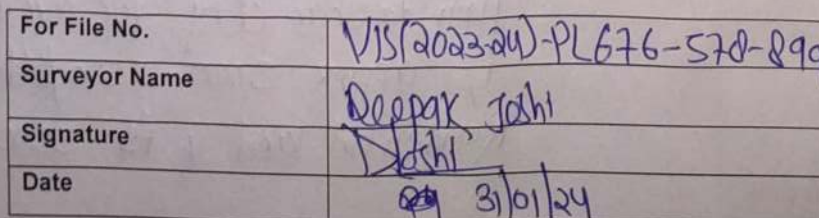 For File No. VIS(2023-24)-PL676-578-890
Surveyor Name Deepak Joshi
Signature DJoshi
Date 31/01/24